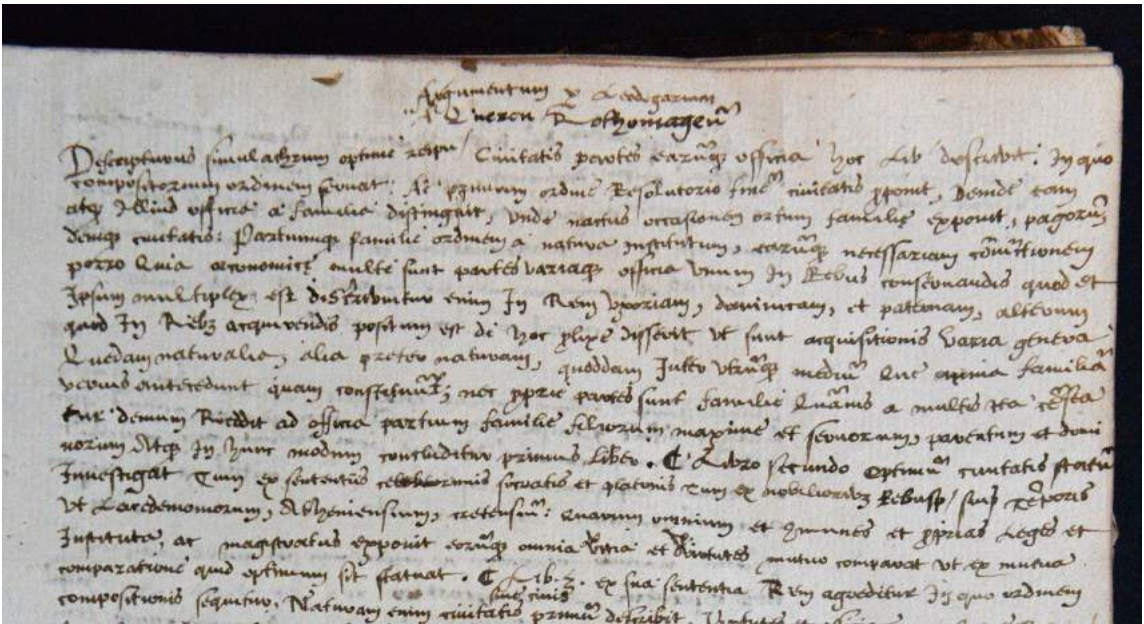 Argumentum p Leodegarium
A Quercu Rothomageũ
Descripturus simulachrum optime reipu/ Civitatis partes earũq officia hoc Lib descrivit. In quo
compositorium ordinem servat. Ac primum ordine Resolutorio finē civitatis pponit, Deinde eam
atq Illius officia a familia distinguit, unde nactus occasionem ortum familię exponit, pagorũ,
deniq civitatis: Partiumq familie ordinem a natura institutum, earũq necessariam
porro Quia œconomicę multe sunt partes variaq officia Unum In Rebus conservandis quod et
Ipsum multiplex est distrivuitur enim In Rem Uxoriam, dominicam, et patriam, alterum
quod In Rebz acquirendis positum est de hoc plixe disserit ut sunt acquisitionis Varia genera
Quedam naturalia, alia preter naturam, quoddam Inter utrũq mediũ Que omnia familiã
verius antecedunt quam constituũt, nec pprie partes sunt familie Quãvis a multis ita
Hinc demum Rieddit ad officia partium familie filiorum maxime et servorum, parentum et domi
norum Atq In hunc modum concluditur primus Liber. Libro secundo Optimũ civitatis statũ
Investigat Tum ex sententiis socratis et platonis tum ex nobilioribz Rebusp/ suis Tẽporis
Ut Lacedemoniorum, Atheniensium, cretensiũ: Quarum omnium et et pprias Leges et
Instituta, ac magistratus exponit eorũq omnia Vitia et Virtutes mutuo comparat Ut ex mutua
comparatione quid optimum sit statuat. Lib. 3. ex sua sententia Rem agreditur In quo ordinem
sive civis
compositionis sequitur. Naturam enim civitatis primũ describit.